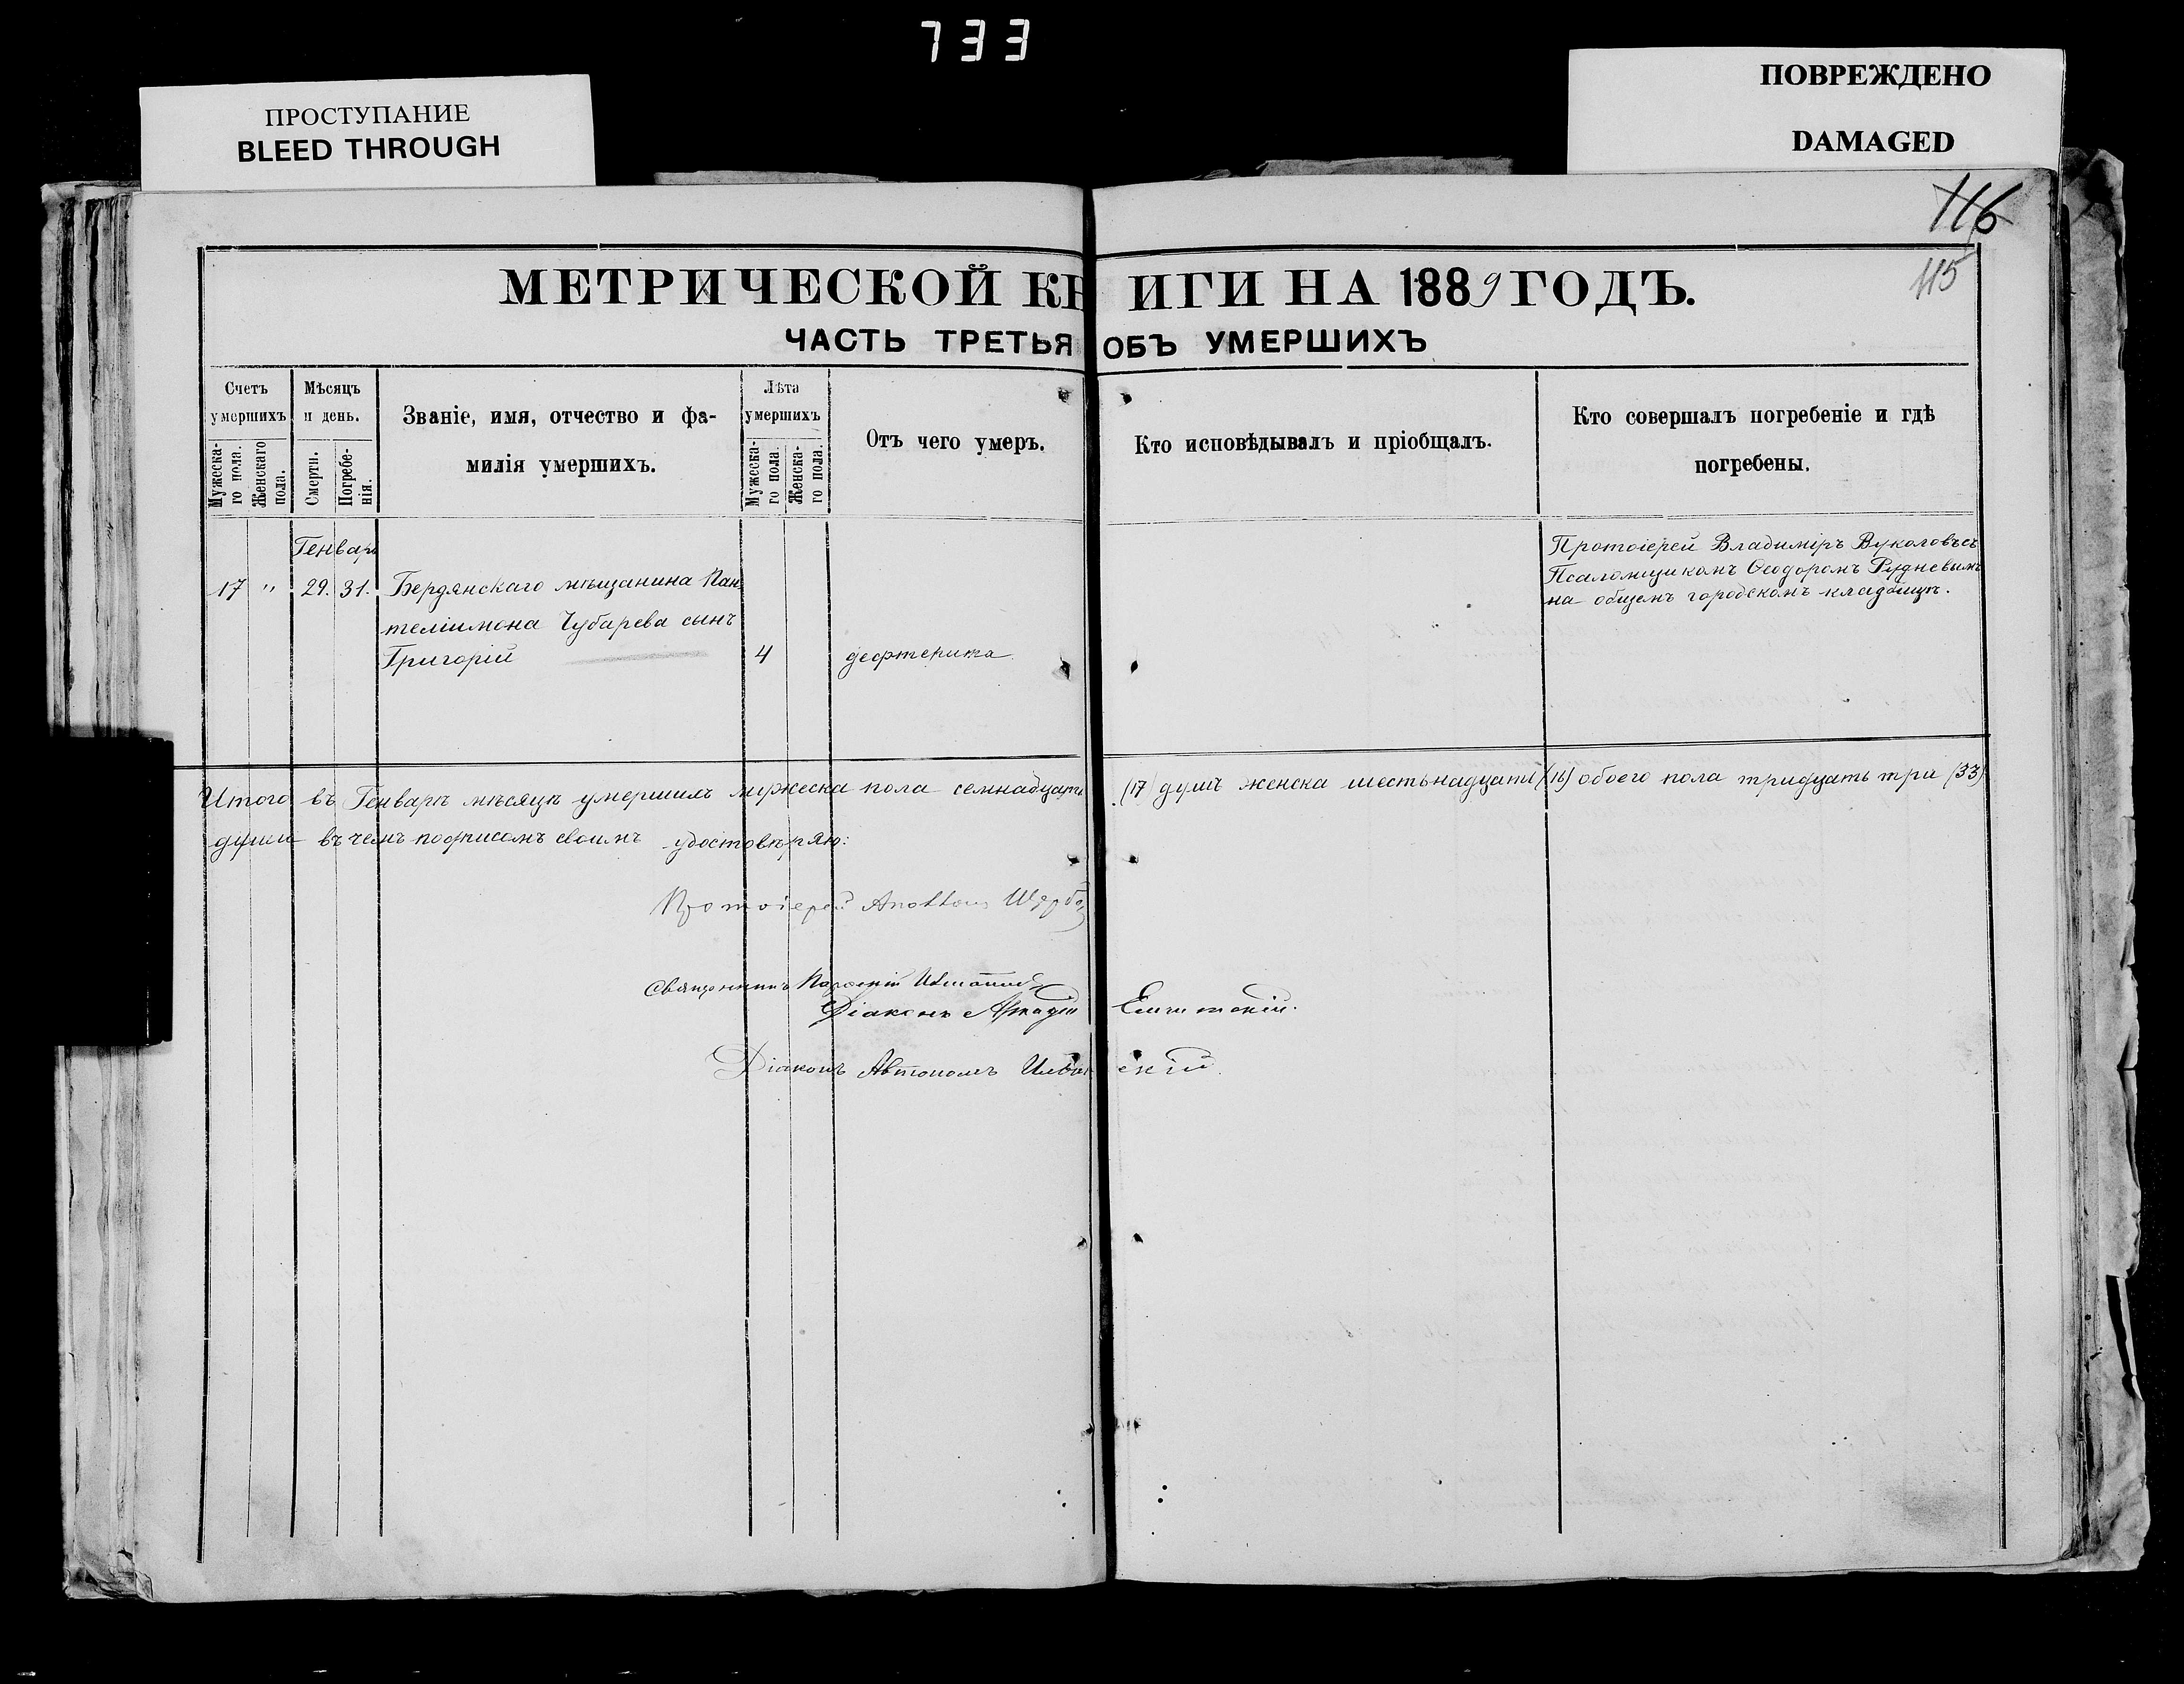 733
ПРОСТУПАНИЕ
BLEED THROUGH
ПОВРЕЖДЕНО
DAMAGED
116
115
МЕТРИЧЕСКОЙ КНИГИ НА 1889 ГОДЪ.
ЧАСТЬ ТРЕТЬЯ ОБЪ УМЕРШИХЪ
Счетъ умершихъ
Мужеска-го пола.
Женскаго пола.
Мѣсяцъ и день.
Смерти.
Погребе-нія.
Званіе, имя, отчество и фа-
милія умершихъ.
Лѣта умершихъ
Мужеска-го пола.
Женска-го пола.
Отъ чего умеръ.
Кто исповѣдывалъ и пріобщалъ.
Кто совершалъ погребеніе и гдѣ
погребены.
Генварь
17 " 29. 31. Бердянскаго мѣщанина Пан-
теліимона Чубарева сынъ
Григорій 4 дефтерита
Протоіерей Владиміръ Вуколовъ съ
Псаломщикомъ Ѳеодоромъ Рудневымъ
на общемъ городскомъ кладбищѣ.
Итого въ Генварѣ мѣсяцѣ умершихъ мужеска пола семнадцать (17) душъ женска шестьнадцать (16) обоего пола тридцать три (33)
души въ чемъ подписомъ своимъ удостовѣряю:
Протоіерей
Священникъ
Діаконъ Аркадій
Діаконъ Автономъ